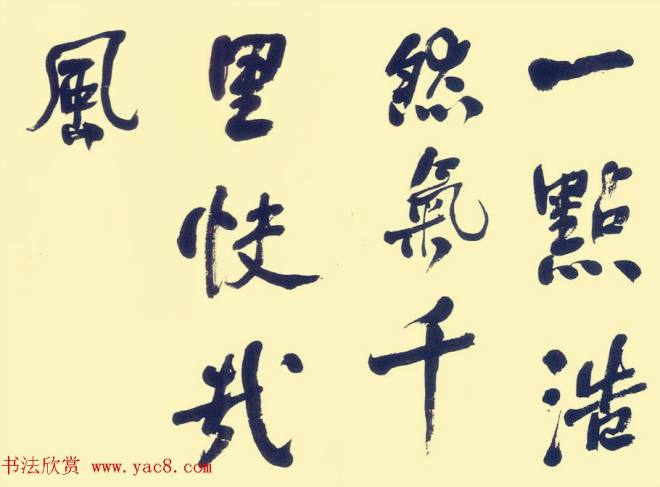 一點浩
然氣千
里快哉
風
书法欣赏 www.yac8.com